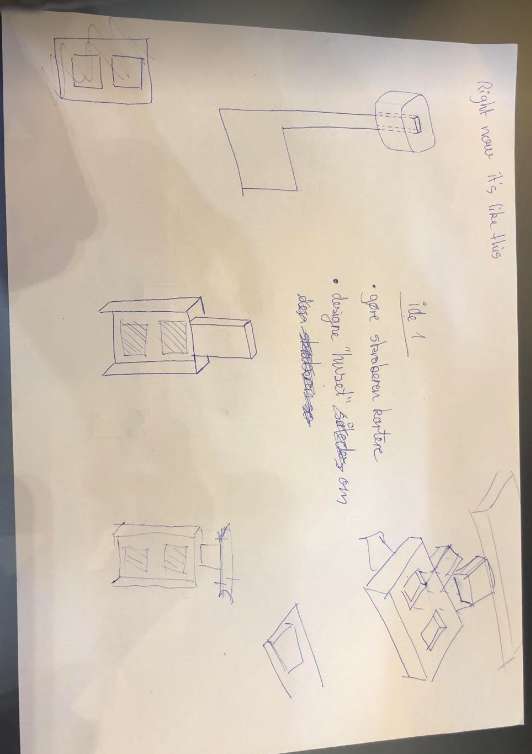 Right now it's like this
ide 1
• gøre skraberen kortere
• designe "huset" således om